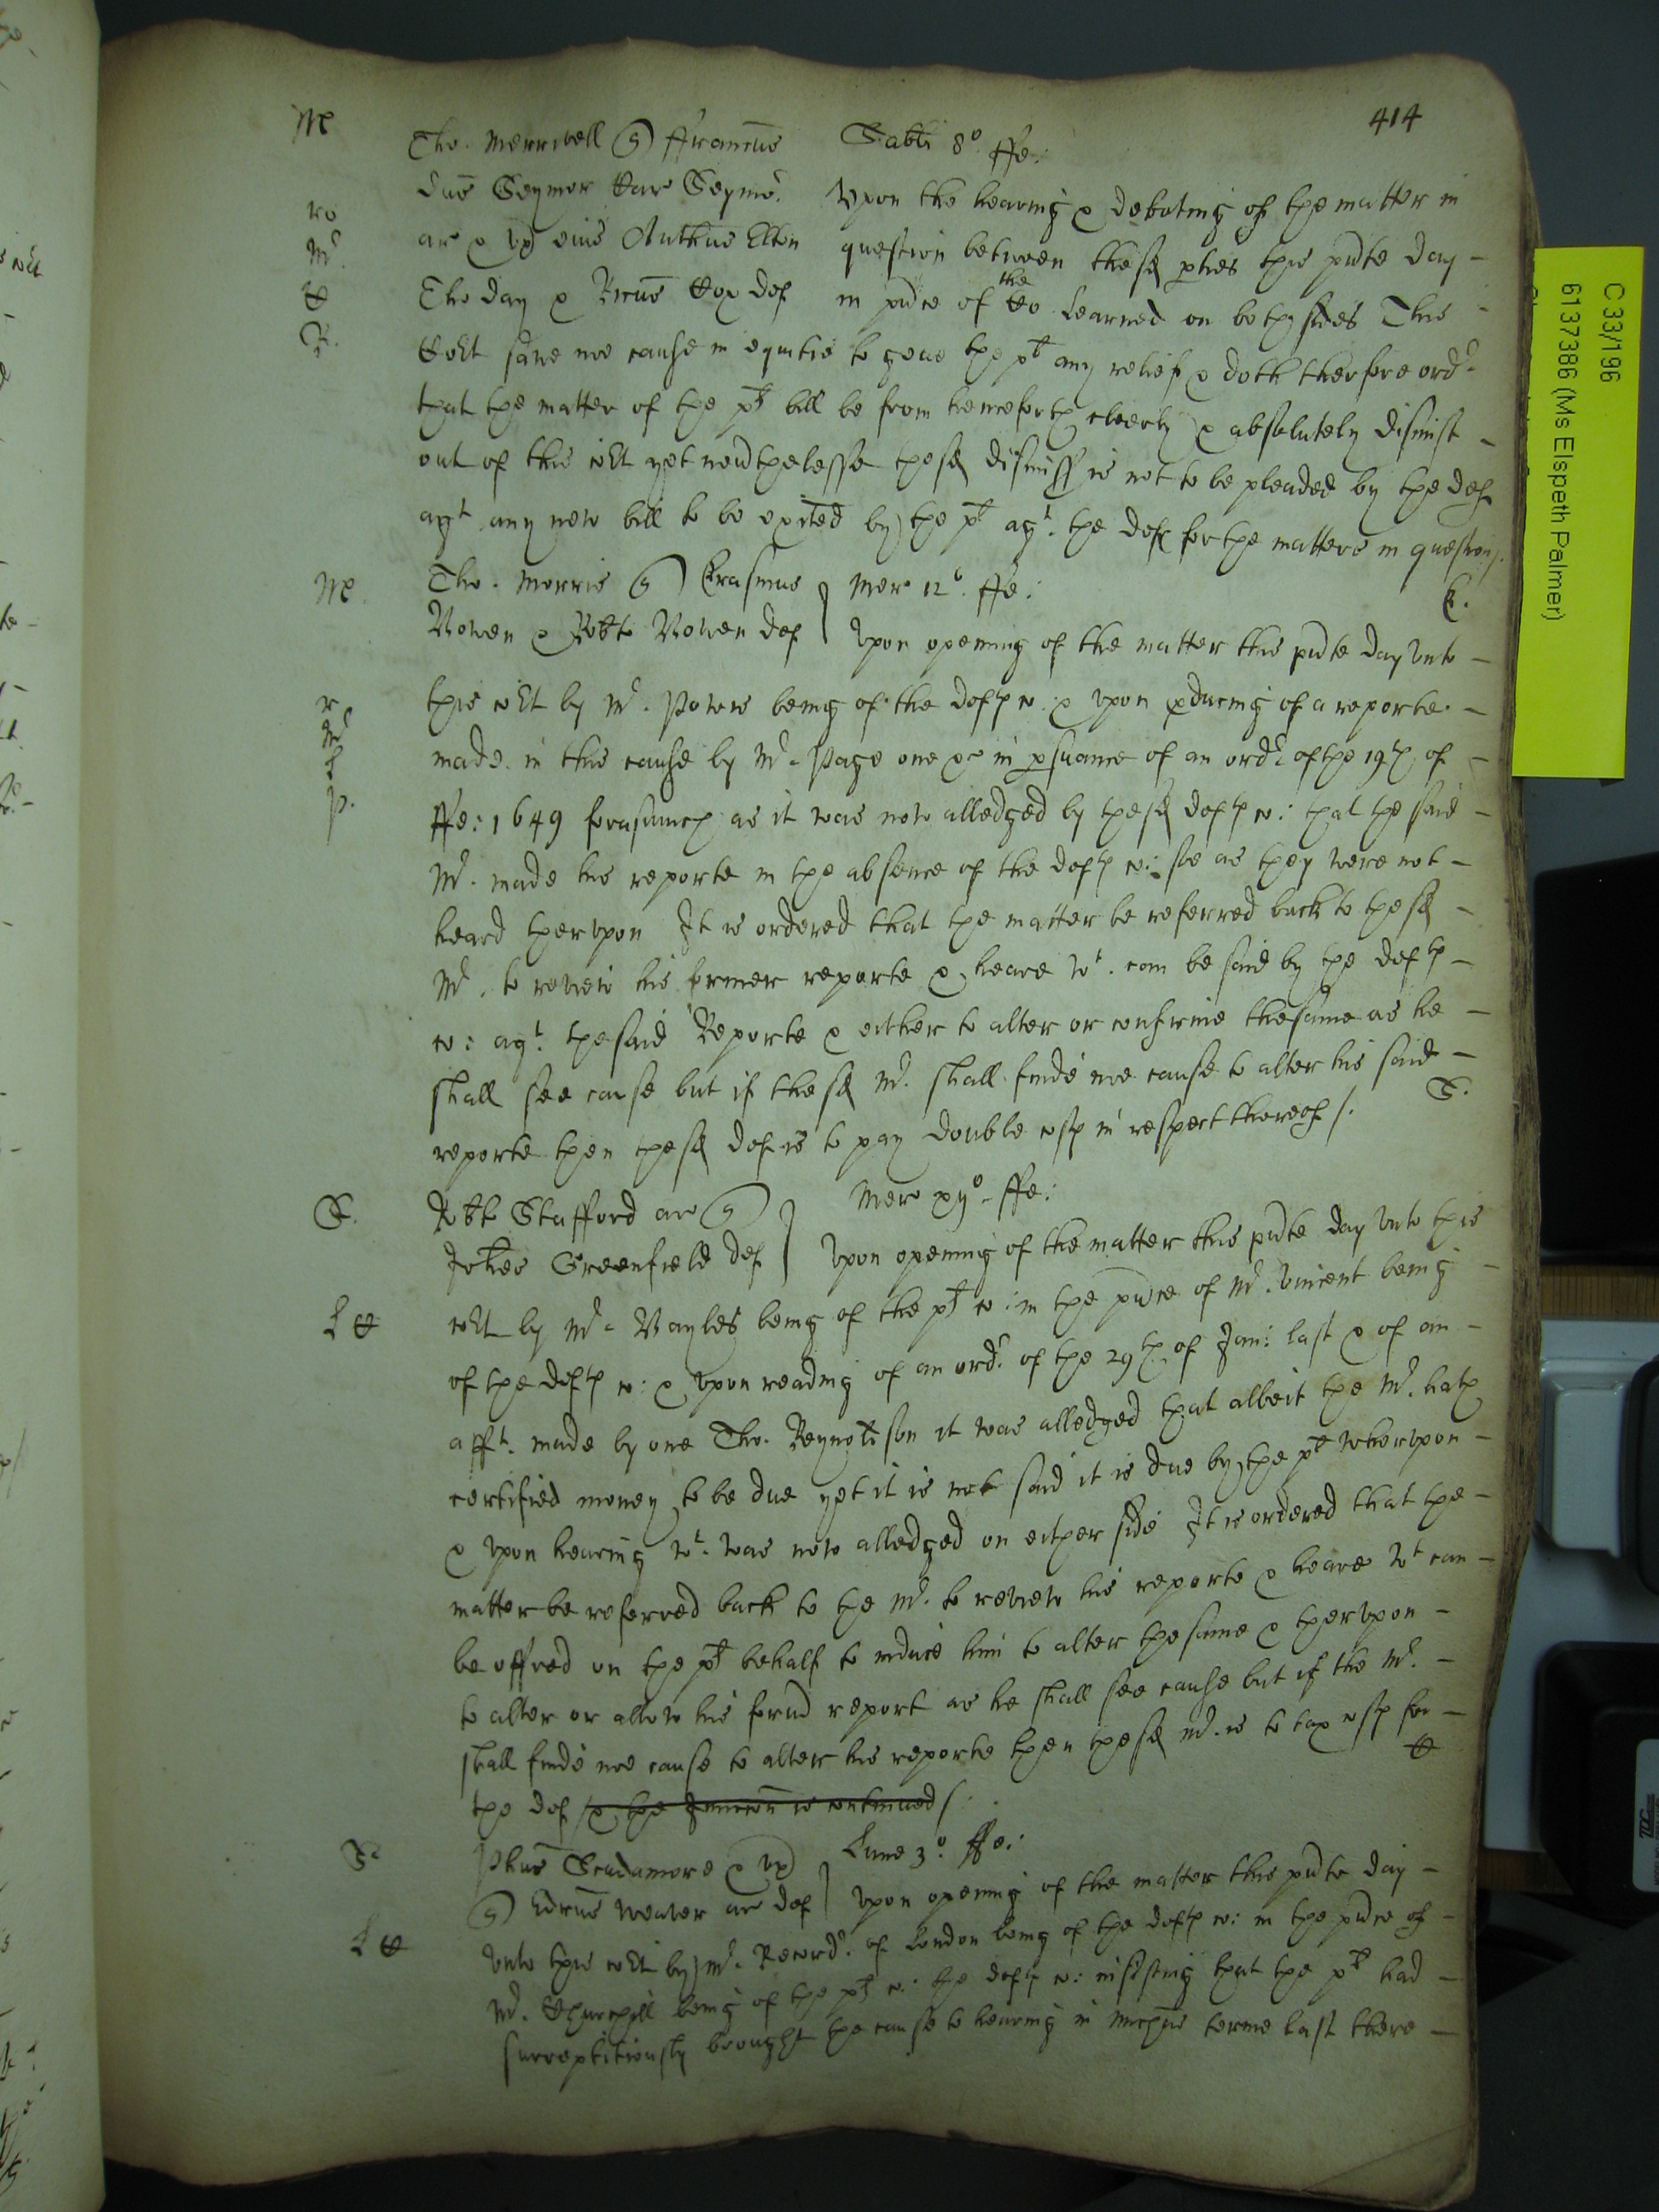 414
M
Tho. Merrivell q) ffrancus Sabti 8o. ffe:
Dns Seymor Kar Seymor. Upon the hearing & debating of the matter in
ro
ar & ux eius Anthus Elton question between these pties this pnte day –
Mr.
Tho day & Ricus Cox def in pnce of the Co Learned on both sides This –
C
R.
Court sawe noe cause in equitie to geue the plt any relief & doth therfore ordr
that the matter of the plts bill be from henceforth cleerly & absolutely dismist –
out of this cort yet nevthelesse these dismiss is not to be pleaded by the def
agt any new bill to be exited by the plt agt. the def for the matters in question /.
E.
M Tho. Morris q) Erasmus } Mer 12o. ffe:
Bowen & Robto Bowen def } Upon opening of the matter this pnte day unto –
r
this cort by Mr. Powis being of the defts co. & upon pducing of a reporte –
Mr
made in this cause by Mr. Page one &c in psuance of an ordr of the 19th of –
L
p.
ffe: 1649 forasmuch as it was now alledged by the sd defts co: that the said –
Mr. made his reporte in the absence of the defts co: soe as they were not –
heard therupon It is ordered that the matter be referred back to the sd –
Mr. to review his former reporte & heare wt. can be said by the defts –
co: agt. the said Reporte & either to alter or confirme the same as he –
shall see cause but if the sd Mr. shall finde noe cause to alter his said –
reporte then the sd def is to pay double costs in respect thereof /. S.
S. Robt Stafford ar q) } Mer xijo. ffe:
Johes Greenfield def } Upon opening of the matter this pnte day unto this
L C
cort by Mr. Bayles being of the plts co: in the pnce of Mr. Vincent being –
of the defts co: & upon reading of an ordr. of the 29th of Jan: last & of an –
afft. made by one Tho. Reynoldson it was alledged that albeit the Mr. hath
certified money to be due yet it is not said it is due by the plt wherupon –
& upon hearing wt. was now alledged on either side It is ordered that the –
matter be referred back to the Mr. to review his reporte & heare wt can –
be offred on the plts behalf to induce him to alter the same & therupon –
to alter or allow his formd report as he shall see cause but if the Mr. –
shall finde noe cause to alter his reporte then the sd Mr. is to tax costs for –
C
the def & the Iniuccon is continued /.
S. Phus Scudamore & ux } Lune 3o. ffe:
q) Edrus Weaver ar def } Upon opening of the matter this pnte day –
L C
unto this cort by Mr. Recordr. of London being of the defts co: in the pnce of –
Mr. Churchill being of the plts co: the defts co: insisting that the plt had –
surreptitiously brought the cause to hearing in Michus terme last there –
C 33/196
6137386 (Ms Elspeth Palmer)